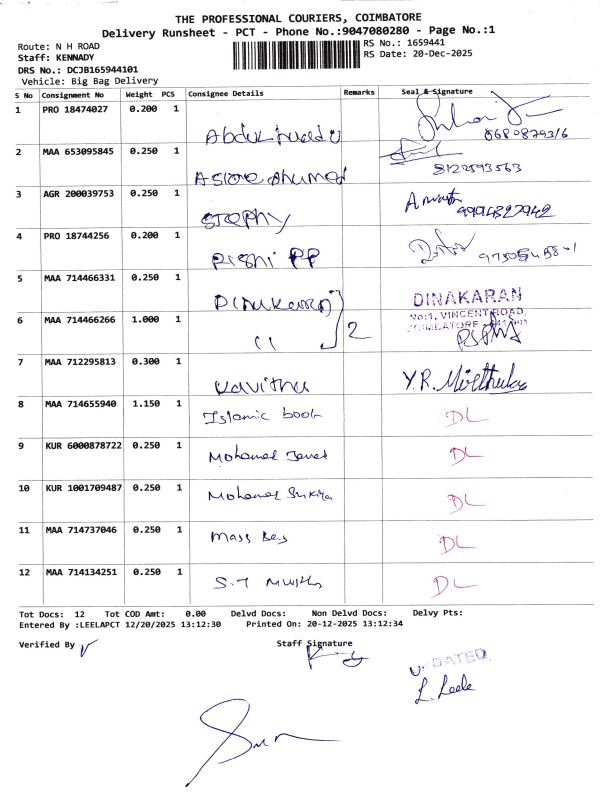 THE PROFESSIONAL COURIERS, COIMBATORE
Delivery Runsheet - PCT - Phone No.:9047080280 - Page No.:1
Route: N H ROAD RS No.: 1659441
Staff: KENNADY RS Date: 20-Dec-2025
DRS No.: DCJB165944101
Vehicle: Big Bag Delivery
S No Consignment No Weight PCS Consignee Details Remarks Seal & Signature
1 PRO 18474027 0.200 1 Abdul
2 MAA 653095845 0.250 1 Ahamed 8122593563
3 AGR 200039753 0.250 1 Stephy 9994827942
4 PRO 18744256 0.200 1 Rishi PP
5 MAA 714466331 0.250 1 DINAKARAN
No:1, VINCENT ROAD,
COIMBATORE
6 MAA 714466266 1.000 1 11 2
7 MAA 712295813 0.300 1 Kavitha Y.R.
8 MAA 714655940 1.150 1 Islamic book DL
9 KUR 6000878722 0.250 1 Mohamed DL
10 KUR 1001709487 0.250 1 Mohamed DL
11 MAA 714737046 0.250 1 Mass DL
12 MAA 714134251 0.250 1 S.T DL
Tot Docs: 12 Tot COD Amt: 0.00 Delvd Docs: Non Delvd Docs: Delvy Pts:
Entered By :LEELAPCT 12/20/2025 13:12:30 Printed On: 20-12-2025 13:12:34
Verified By Staff Signature
UPDATED
L. Leela